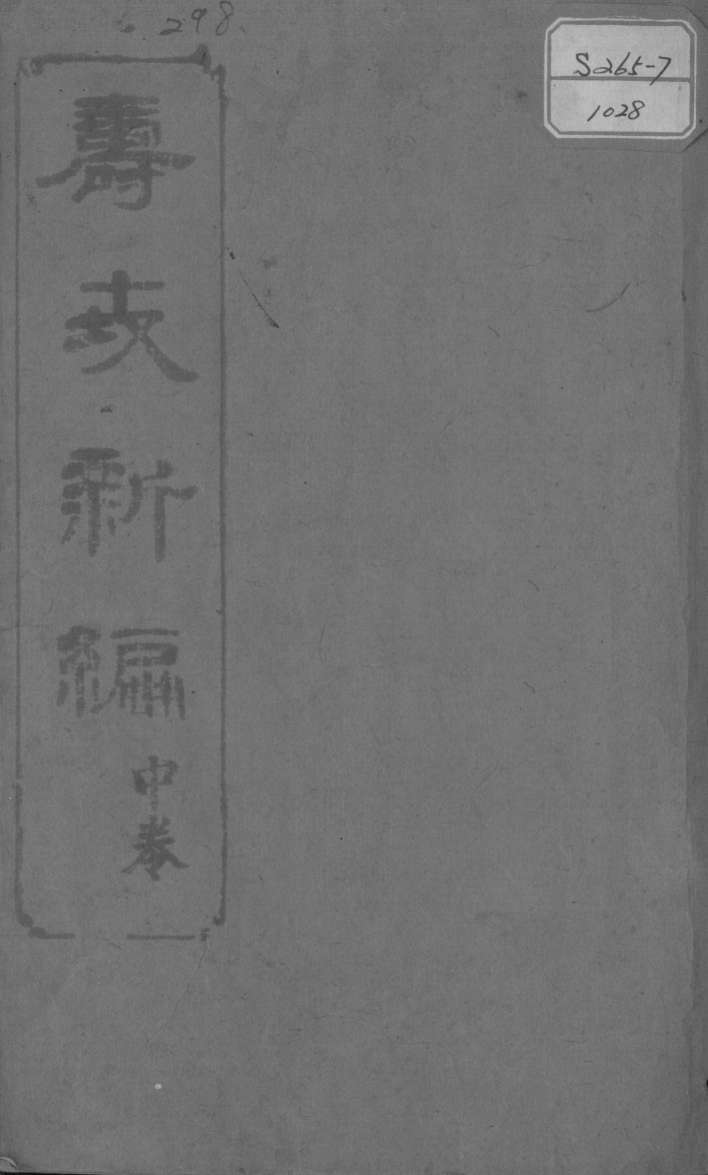 298
S265-7
1028
壽世新編
中卷